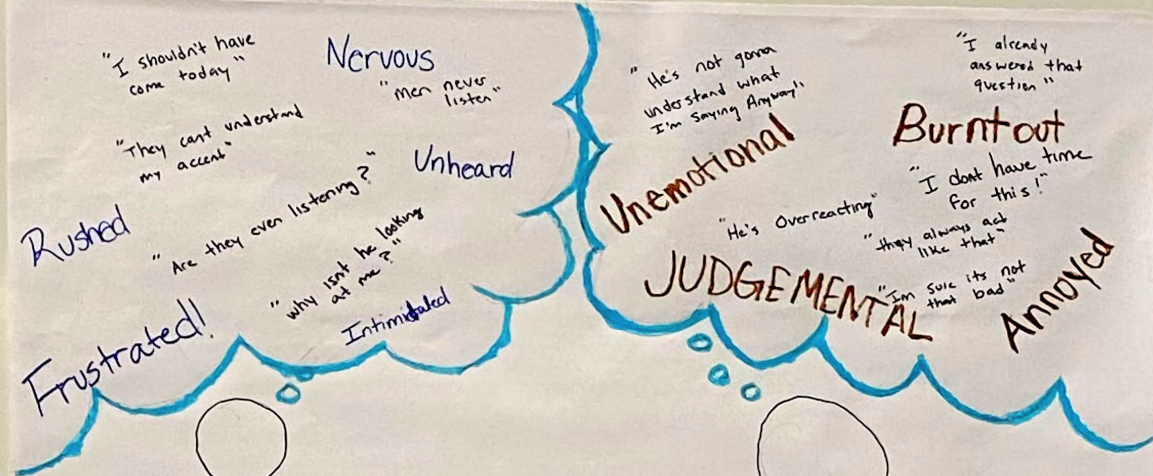 "I shouldn't have
come today"
Nervous
"Men never
listen"
"They cant understand
my accent"
Unheard
Rushed
"Are they even listening?"
"why isnt he looking
at me?"
Intimidated
Frustrated!
"He's not gonna
understand what
I'm Saying Anyway!"
"I already
answered that
question"
Burntout
Unemotional
"I dont have time
for this!"
"He's Overreacting"
"they always act
like that"
JUDGEMENTAL
"Im sure its not
that bad"
Annoyed